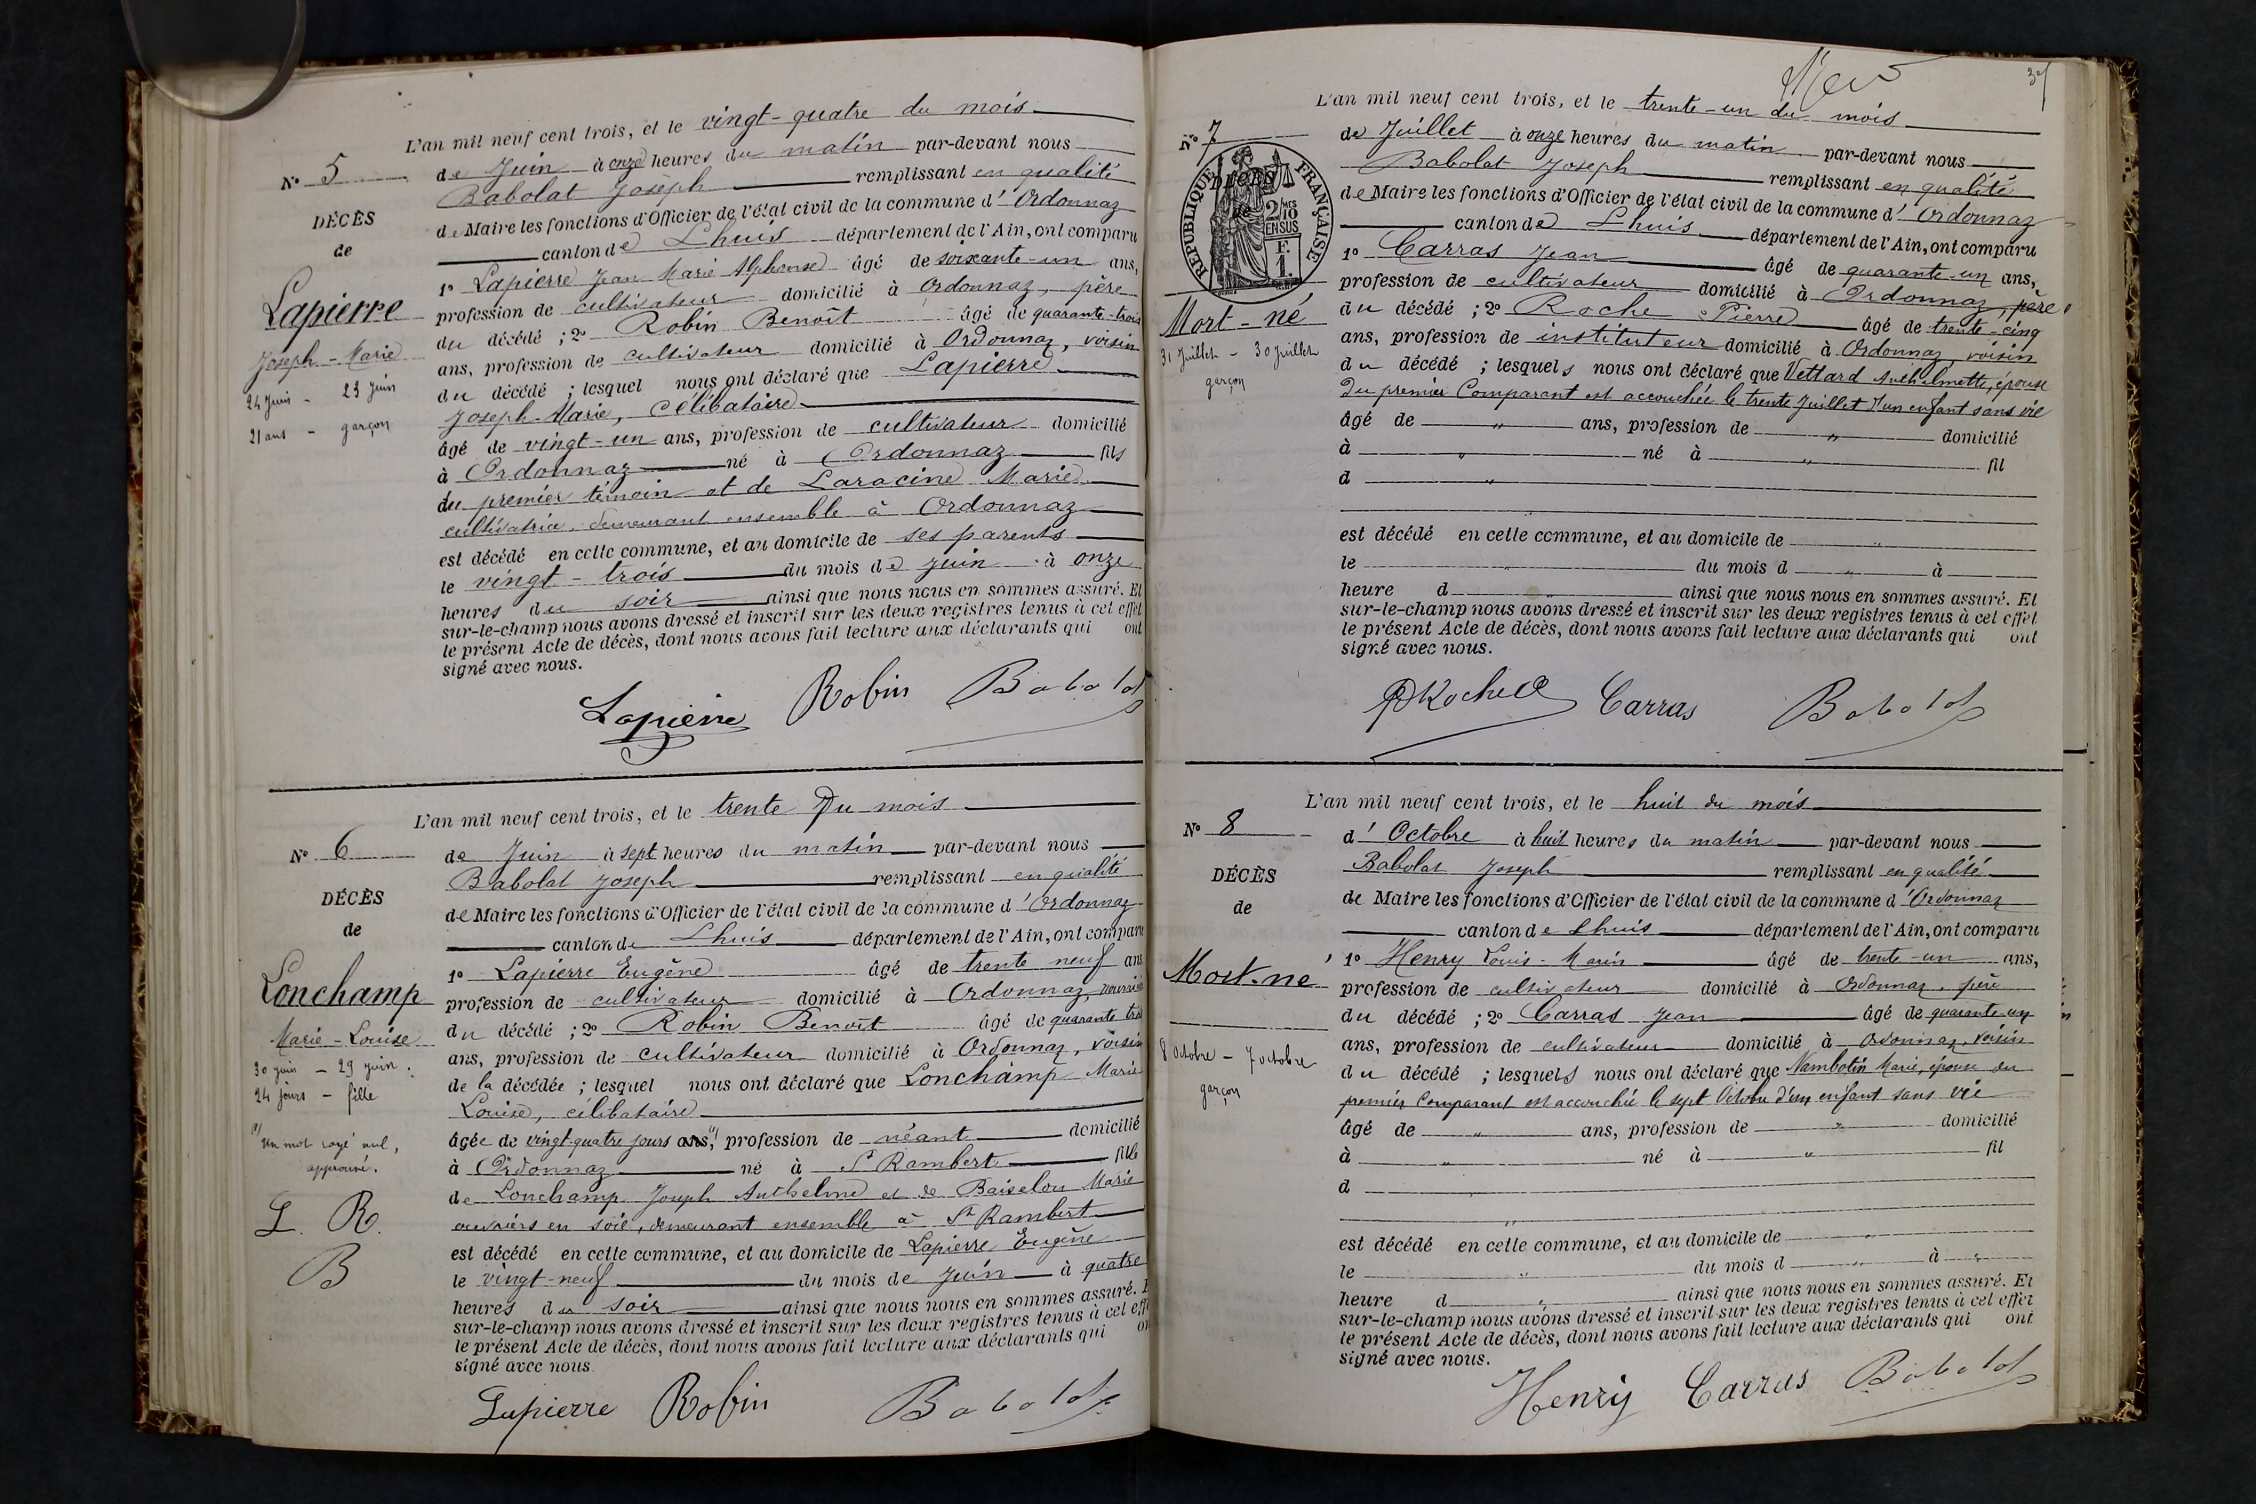 L'an mil neuf cent trois, et le vingt-quatre du mois
N° 5
de Juin à onze heures du matin par-devant nous
Babolat Joseph remplissant en qualité
DÉCÈS
de Maire les fonctions d'Officier de l'état civil de la commune d'Ordonnaz
de
canton de Lhuis département de l'Ain, ont comparu
1° Lapierre Jean Marie Alphonse âgé de soixante-un ans,
Lapierre
profession de cultivateur domicilié à Ordonnaz, père
du décédé ; 2° Robin Benoît âgé de quarante-trois
Joseph-Marie
ans, profession de cultivateur domicilié à Ordonnaz, voisin
24 Juin - 23 Juin
du décédé ; lesquel nous ont déclaré que Lapierre
21 ans - garçon
Joseph-Marie, célibataire
âgé de vingt-un ans, profession de cultivateur domicilié
à Ordonnaz né à Ordonnaz fils
du premier témoin et de Laracine Marie
cultivatrice, demeurant ensemble à Ordonnaz
est décédé en cette commune, et au domicile de ses parents
le vingt-trois du mois de Juin à onze
heures du soir ainsi que nous nous en sommes assuré. Et
sur-le-champ nous avons dressé et inscrit sur les deux registres tenus à cet effet
le présent Acte de décès, dont nous avons fait lecture aux déclarants qui ont
signé avec nous.
Lapierre Robin Babolat
L'an mil neuf cent trois, et le trente Du mois
N° 6
de Juin à sept heures du matin par-devant nous
Babolat Joseph remplissant en qualité
DÉCÈS
de Maire les fonctions d'Officier de l'état civil de la commune d'Ordonnaz
de
canton de Lhuis département de l'Ain, ont comparu
1° Lapierre Eugène âgé de trente neuf ans
Lonchamp
profession de cultivateur domicilié à Ordonnaz,
du décédé ; 2° Robin Benoît âgé de quarante trois
Marie-Louise
ans, profession de cultivateur domicilié à Ordonnaz, voisin
30 juin - 29 juin.
de la décédée ; lesquel nous ont déclaré que Lonchamp Marie
24 jours - fille
Louise, célibataire
(1) Un mot rayé nul,
approuvé.
âgée de vingt-quatre jours ans,(1) profession de néant domicilié
à Ordonnaz né à St Rambert fille
de Lonchamp Joseph Anthelme et de Baiselon Marie
L. R.
ouvriers en soie, demeurant ensemble à St Rambert
B
est décédé en cette commune, et au domicile de Lapierre Eugène
le vingt-neuf du mois de Juin à quatre
heures du soir ainsi que nous nous en sommes assuré. E
sur-le-champ nous avons dressé et inscrit sur les deux registres tenus à cet eff
le présent Acte de décès, dont nous avons fait lecture aux déclarants qui on
signé avec nous
Lapierre Robin Babolat
L'an mil neuf cent trois, et le trente-un du mois
N° 7
de Juillet à onze heures du matin par-devant nous
Babolat Joseph remplissant en qualité
DÉCÈS
de
RÉPUBLIQUE FRANÇAISE
2/10 EN SUS
F.
1.
de Maire les fonctions d'Officier de l'état civil de la commune d'Ordonnaz
canton de Lhuis département de l'Ain, ont comparu
1° Carras Jean âgé de quarante-un ans,
profession de cultivateur domicilié à Ordonnaz, père
Mort-né
du décédé ; 2° Roche Pierre âgé de trente-cinq
31 Juillet - 30 Juillet
ans, profession de instituteur domicilié à Ordonnaz, voisin
garçon
du décédé ; lesquels nous ont déclaré que Vettard Anthelmette, épouse
Du premier Comparant est accouchée le trente Juillet d'un enfant sans vie
âgé de " ans, profession de " domicilié
à " né à " fil
d "
est décédé en cette commune, et au domicile de "
le " du mois d " à
heure d " ainsi que nous nous en sommes assuré. Et
sur-le-champ nous avons dressé et inscrit sur les deux registres tenus à cet effet
le présent Acte de décès, dont nous avons fait lecture aux déclarants qui ont
signé avec nous.
P Roche Carras Babolat
L'an mil neuf cent trois, et le huit du mois
N° 8
d'Octobre à huit heures du matin par-devant nous
Babolat Joseph remplissant en qualité
DÉCÈS
de
de Maire les fonctions d'Officier de l'état civil de la commune d'Ordonnaz
canton de Lhuis département de l'Ain, ont comparu
1° Henry Louis-Marin âgé de trente-un ans,
Mort-né
profession de cultivateur domicilié à Ordonnaz, père
du décédé ; 2° Carras Jean âgé de quarante-un
ans, profession de cultivateur domicilié à Ordonnaz, voisin
8 Octobre - 7 octobre
du décédé ; lesquels nous ont déclaré que Nambotin Marie, épouse du
garçon
premier Comparant est accouchée le sept Octobre d'un enfant sans vie
âgé de " ans, profession de " domicilié
à " né à " fil
d
"
est décédé en cette commune, et au domicile de "
le " du mois d " à "
heure d " ainsi que nous nous en sommes assuré. Et
sur-le-champ nous avons dressé et inscrit sur les deux registres tenus à cet effet
le présent Acte de décès, dont nous avons fait lecture aux déclarants qui ont
signé avec nous.
Henry Carras Babolat